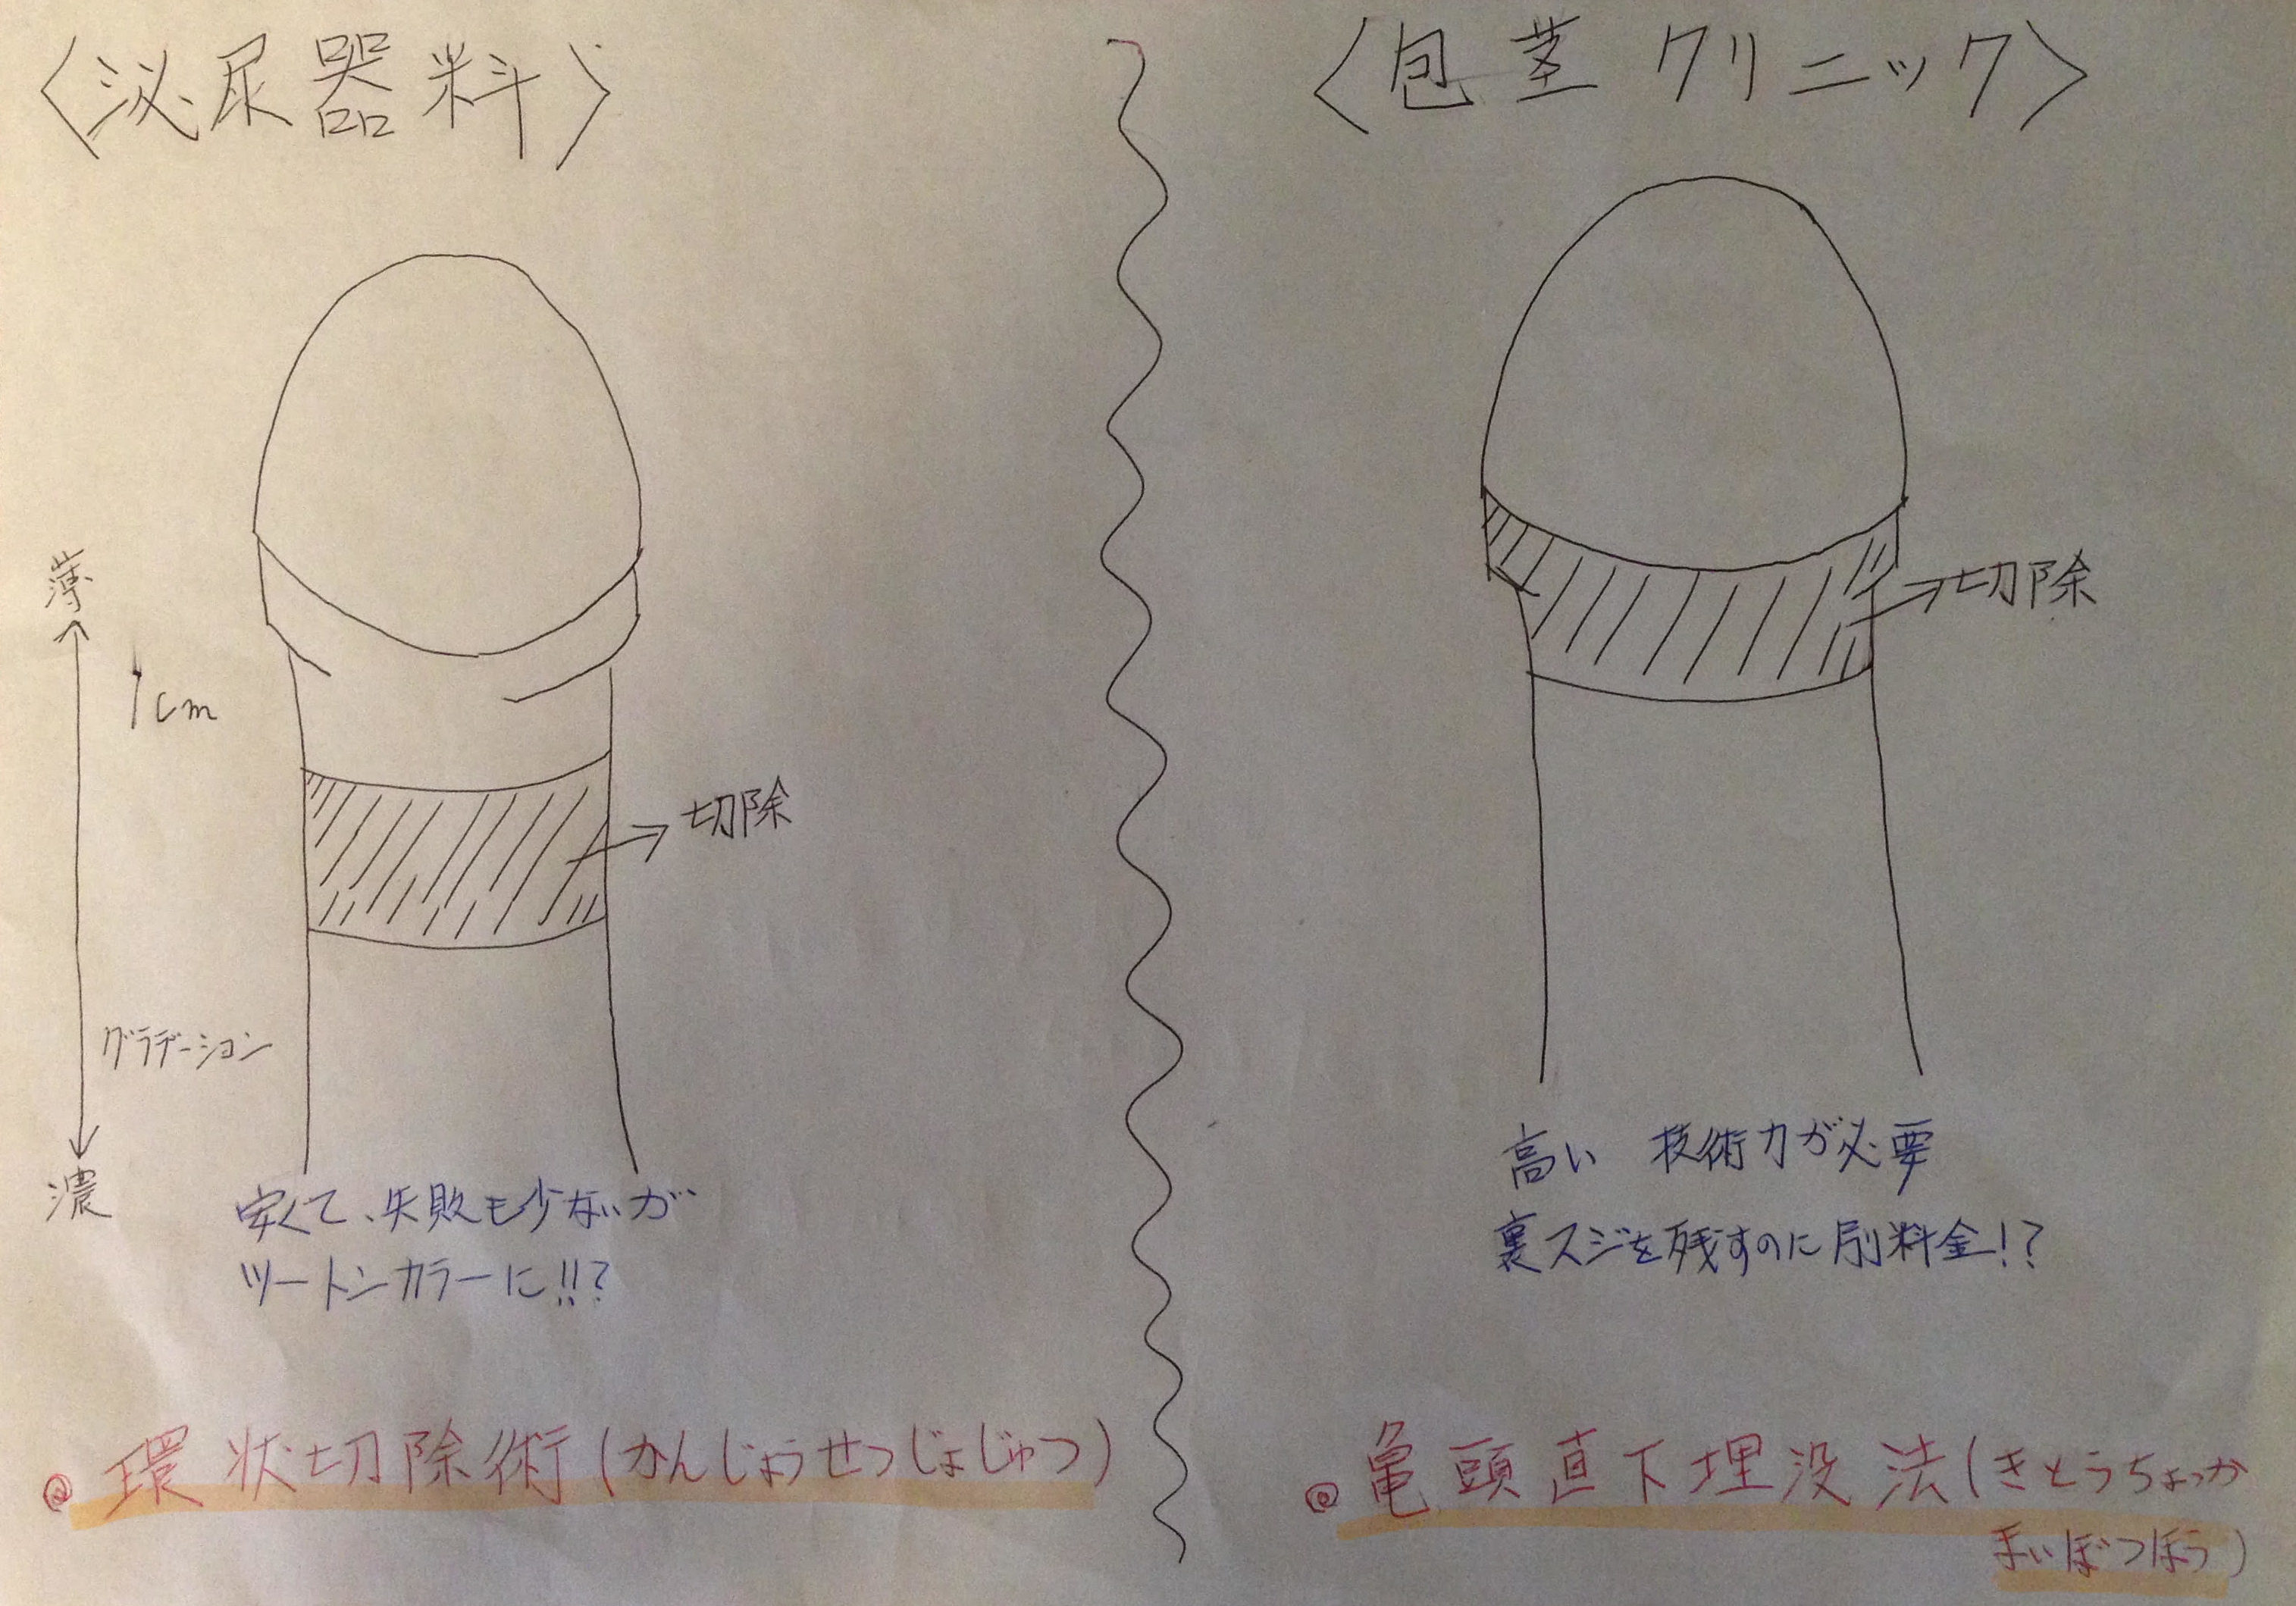 〈泌尿器料〉
薄
1cm
切除
グラデーション
濃
安くて、失敗も少ないが
ツートンカラーに!!?
@環状切除術(かんじょうせつじょじゅつ)
〈包茎クリニック〉
切除
高い 技術力が必要
裏スジを残すのに別料金!?
@亀頭直下埋没法(きとうちょっか
まいぼつほう)